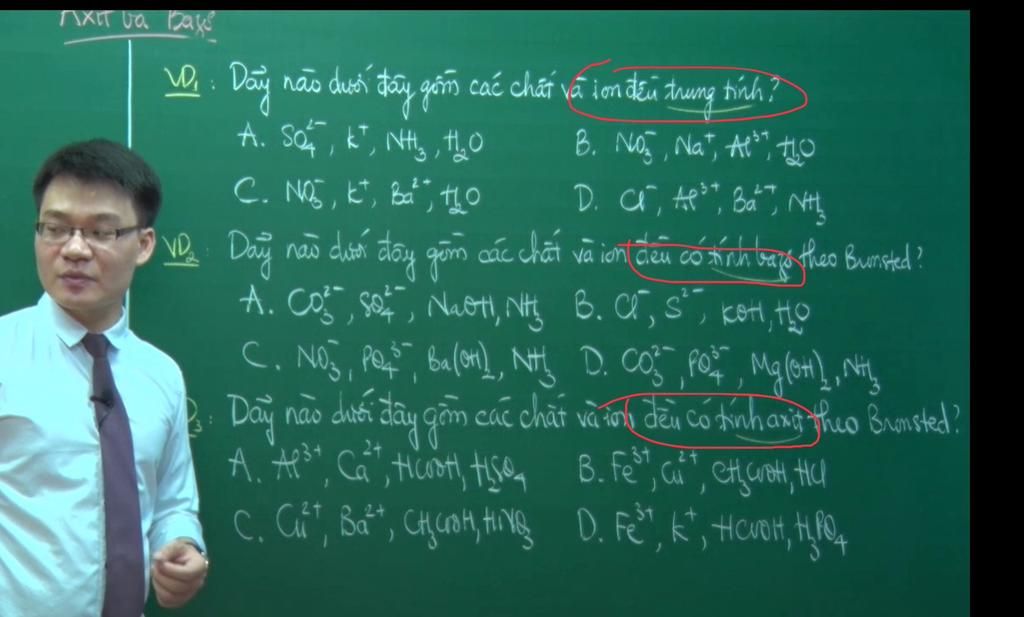 Axit và Bazơ
VD1: Dãy nào dưới đây gồm các chất và ion đều trung tính?
A. SO₄²⁻, K⁺, NH₃, H₂O B. NO₃⁻, Na⁺, Al³⁺, H₂O
C. NO₃⁻, K⁺, Ba²⁺, H₂O D. Cl⁻, Al³⁺, Ba²⁺, NH₃
VD2: Dãy nào dưới đây gồm các chất và ion đều có tính bazơ theo Bronsted?
A. CO₃²⁻, SO₄²⁻, NaOH, NH₃ B. Cl⁻, S²⁻, KOH, H₂O
C. NO₃⁻, PO₄³⁻, Ba(OH)₂, NH₃ D. CO₃²⁻, PO₄³⁻, Mg(OH)₂, NH₃
3: Dãy nào dưới đây gồm các chất và ion đều có tính axit theo Bronsted?
A. Al³⁺, Ca²⁺, HCOOH, H₂SO₄ B. Fe³⁺, Cu²⁺, CH₃COOH, HCl
C. Cu²⁺, Ba²⁺, CH₃COOH, HNO₃ D. Fe³⁺, K⁺, HCOOH, H₃PO₄